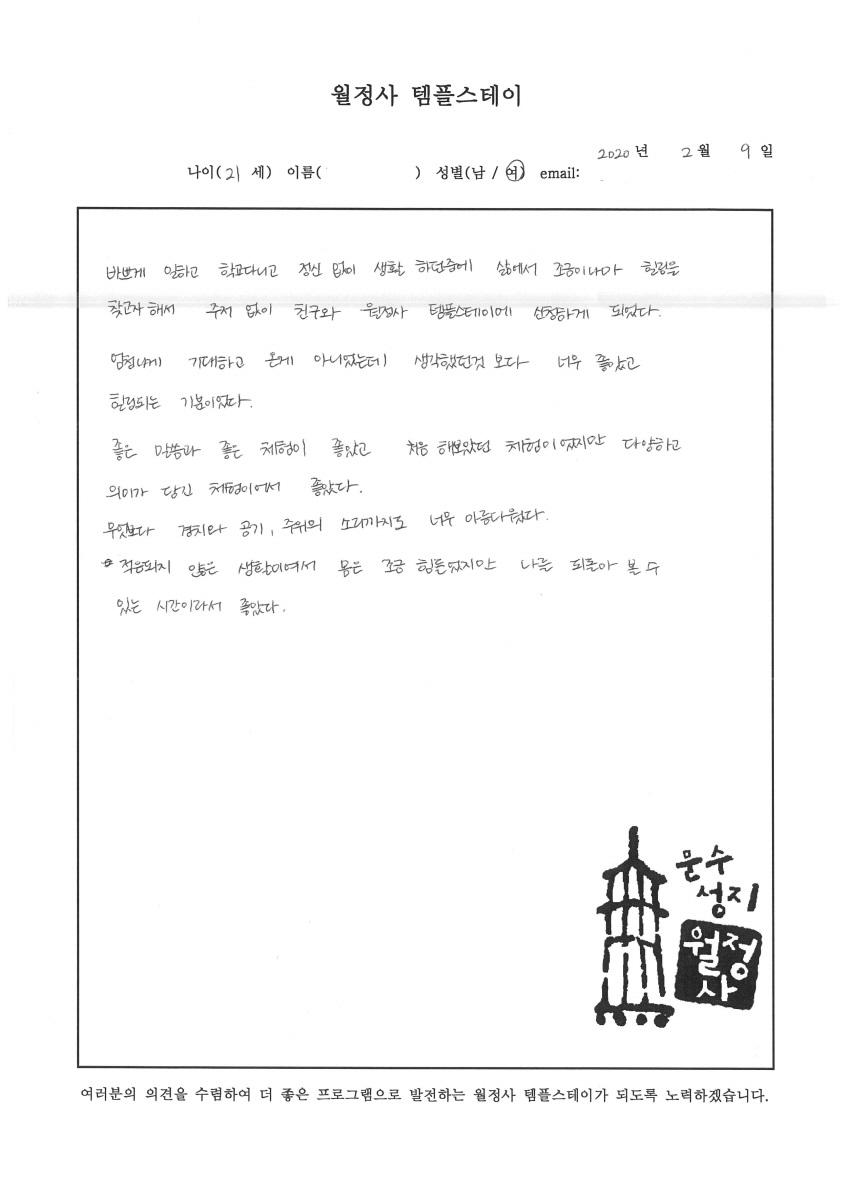 월정사 템플스테이
2020년 2월 9일
나이(21 세) 이름( ) 성별(남 / 여) email:
바쁘게 일하고 학교다니고 정신 없이 생활 하던중에 삶에서 조금이나마 힐링을
찾고자 해서 주저 없이 친구와 월정사 템플스테이에 신청하게 되었다.
엄청나게 기대하고 온게 아니었는데 생각했던것 보다 너무 좋았고
힐링되는 기분이었다.
좋은 말씀과 좋은 체험이 좋았고 처음 해보았던 체험이었지만 다양하고
의미가 담긴 체험이어서 좋았다.
무엇보다 경치와 공기, 주위의 소리까지도 너무 아름다웠다.
적응되지 않은 생활이여서 몸은 조금 힘들었지만 나를 되돌아 볼 수
있는 시간이라서 좋았다.
문수
성지
월정
사
여러분의 의견을 수렴하여 더 좋은 프로그램으로 발전하는 월정사 템플스테이가 되도록 노력하겠습니다.